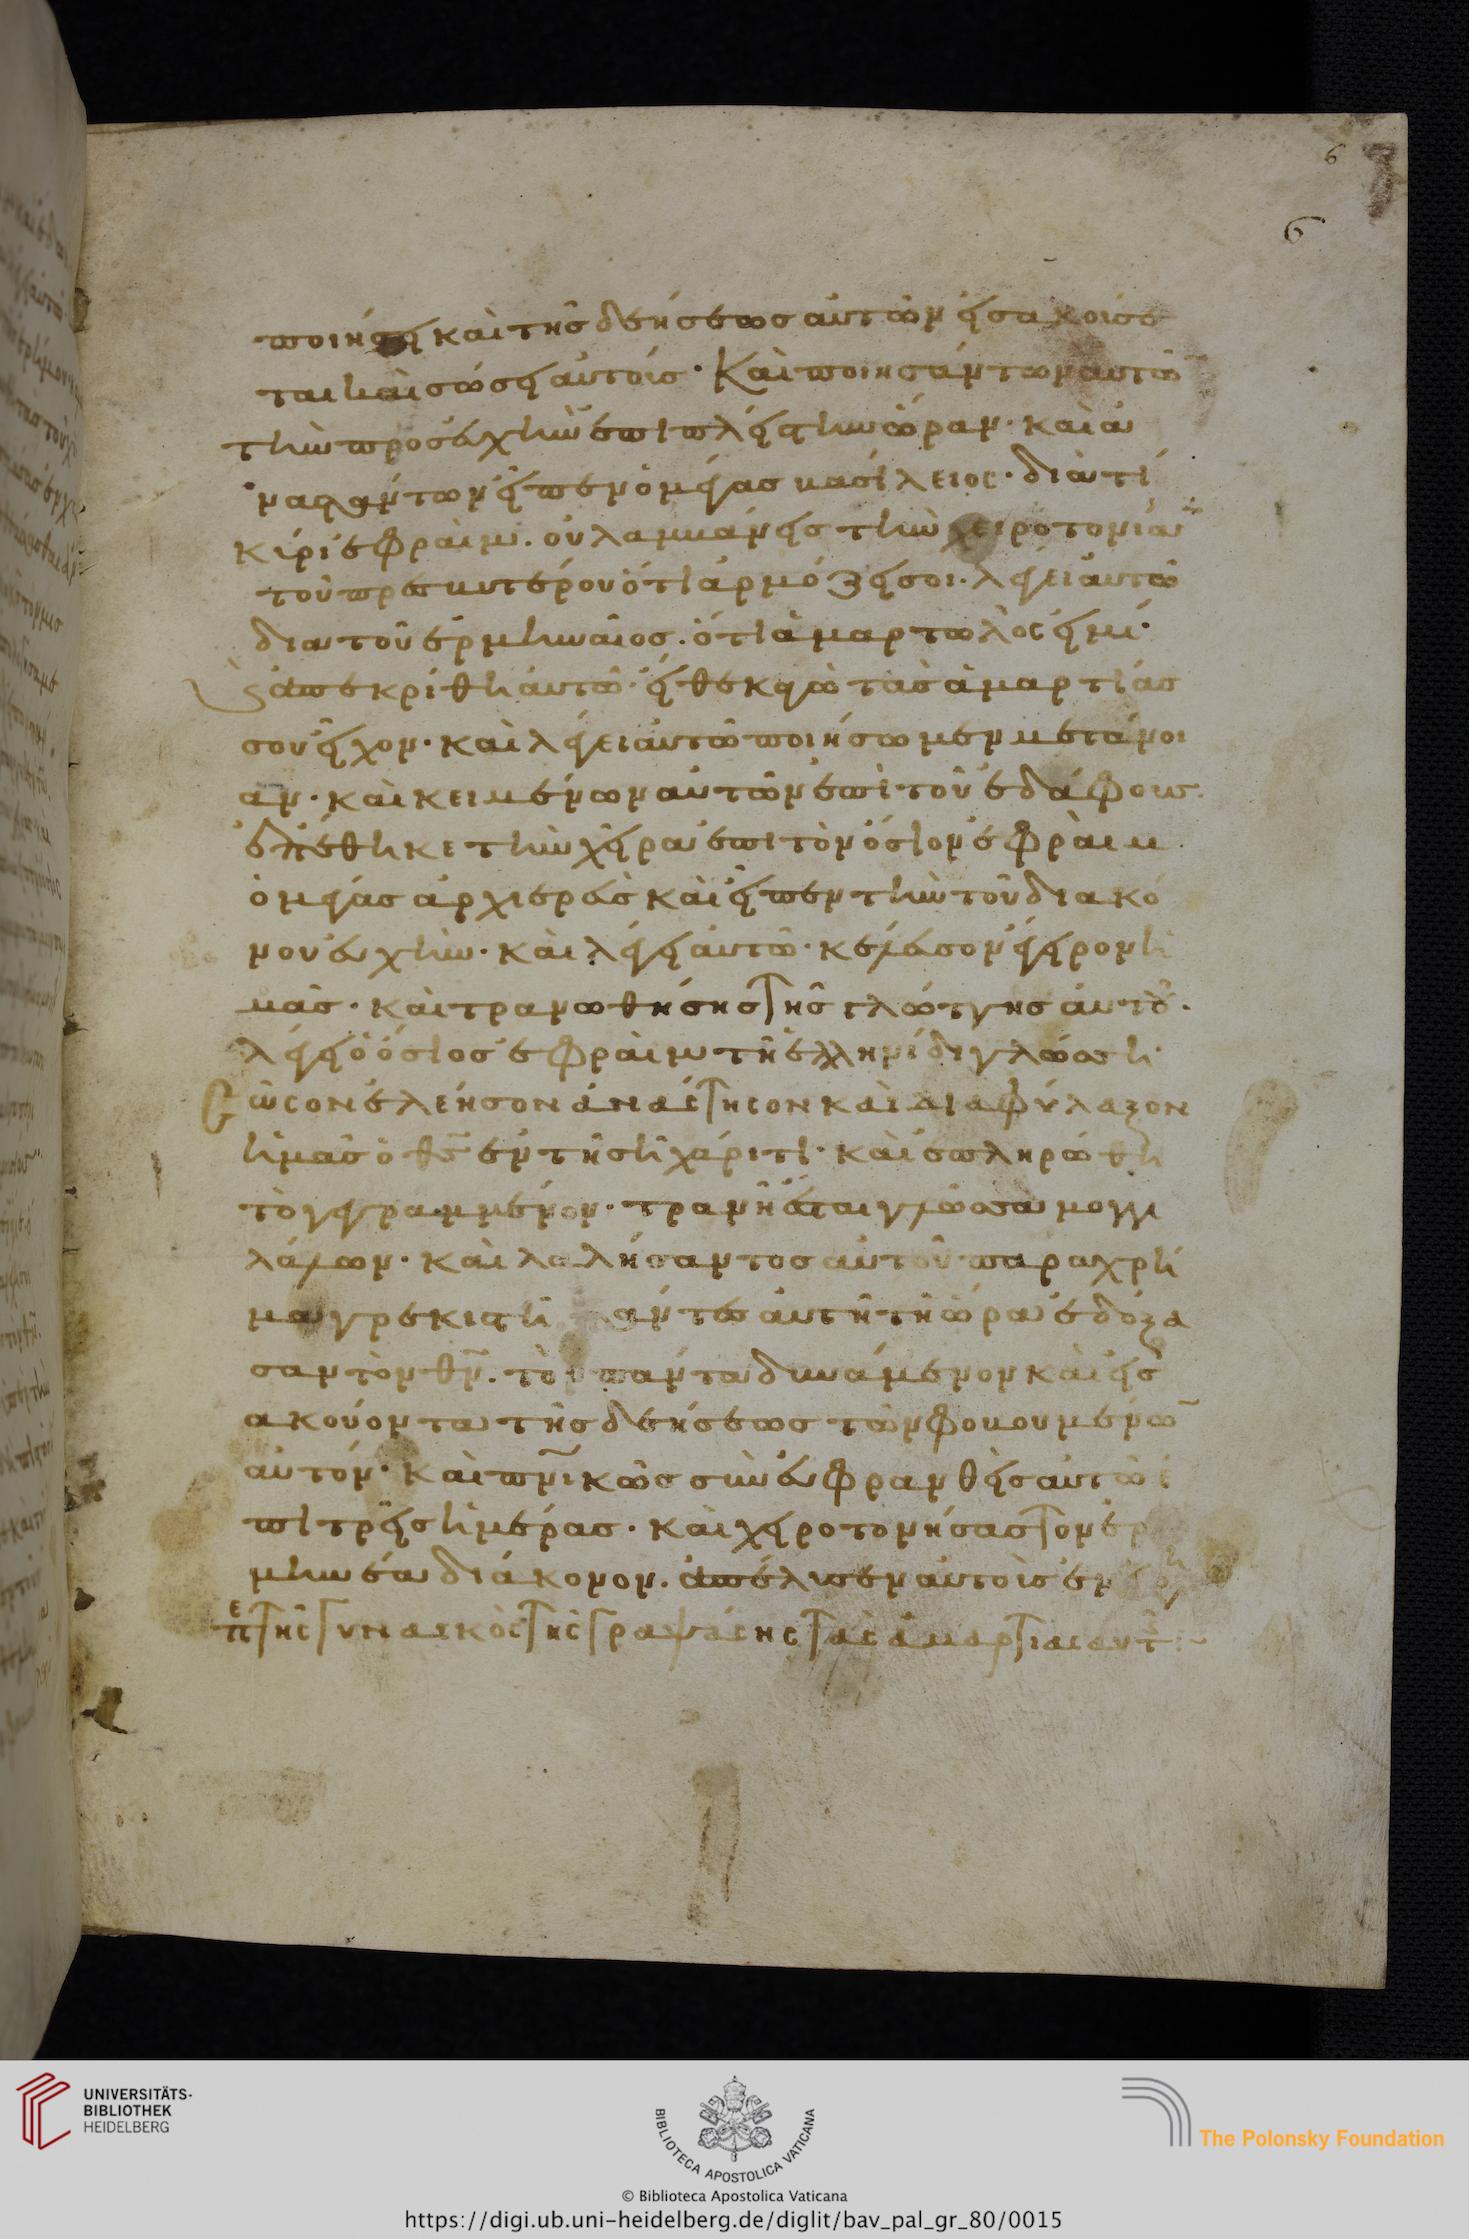 6
6
ποιήσει καὶ τῆς δεήσεως αὐτῶν εἰσακούσε
ται καὶ σώσει αὐτούς· Καὶ ποιησάντων αὐτῶν
τὴν προσευχὴν ἐπὶ πλείστην ὥραν· καὶ ἀ
ναστάντων εἶπεν ὁ μέγας βασίλειος· διὰ τί
κύρι ἐφραὶμ. οὐ λαμβάνεις τὴν χειροτονίαν
τοῦ πρεσβυτέρου ὅτι ἁρμόζει σοι. λέγει αὐτῶ
διὰ τοῦ ἑρμηνέως. ὅτι ἁμαρτωλός εἰμι·
ἀπεκρίθη αὐτῶ· εἴθε κἀγὼ τὰς ἁμαρτίας
σου εἶχον· καὶ λέγει αὐτῶ ποιήσωμεν μετάνοι
αν· καὶ κειμένων αὐτῶν ἐπὶ τοῦ ἐδάφους
ἐπέθηκε τὴν χεῖρα ἐπὶ τὸν ὅσιον ἐφραὶμ
ὁ μέγας ἀρχιερεὺς καὶ εἶπεν τὴν τοῦ διακό
νου εὐχὴν· καὶ λέγει αὐτῶ· κέλευσον ἐγεῖρον ἡ
μᾶς· καὶ τρανωθήσης τῆς γλώττης αὐτοῦ·
λέγει ὁ ὅσιος ἐφραὶμ τῆ ἑλληνίδι γλώσση·
Σῶσον ἐλέησον ἀνάστησον καὶ διαφύλαξον
ἡμᾶς ὁ θς ἐν τῆ σῆ χάριτι· καὶ ἐπληρώθη
τὸ γεγραμμένον· τρανὴ ἔσται γλῶσσα μογγι
λάλων· καὶ λαλήσαντος αὐτοῦ παραχρῆ
μα γρεκιστὴ πάντες αὐτῆ τῆ ὥρα ἐδόξα
σαν τὸν θν. τὸν πάντα δυνάμενον καὶ εἰσ
ακούοντα τῆς δεήσεως τῶν φοβουμένων
αὐτόν· καὶ πνικῶς συνευφρανθεὶς αὐτῶ ἐ
πὶ τρεῖς ἡμέρας· καὶ χειροτονήσας τὸν ἑρ
μηνέα διάκονον. ἀπέλυσεν αὐτοὺς ἐν
ε πε τῆς γυναικὸς τῆς γραψάσης τὰς ἁμαρτίας αὐτῆς
UNIVERSITÄTS-
BIBLIOTHEK
HEIDELBERG
BIBLIOTECA APOSTOLICA VATICANA
The Polonsky Foundation
© Biblioteca Apostolica Vaticana
https://digi.ub.uni-heidelberg.de/diglit/bav_pal_gr_80/0015